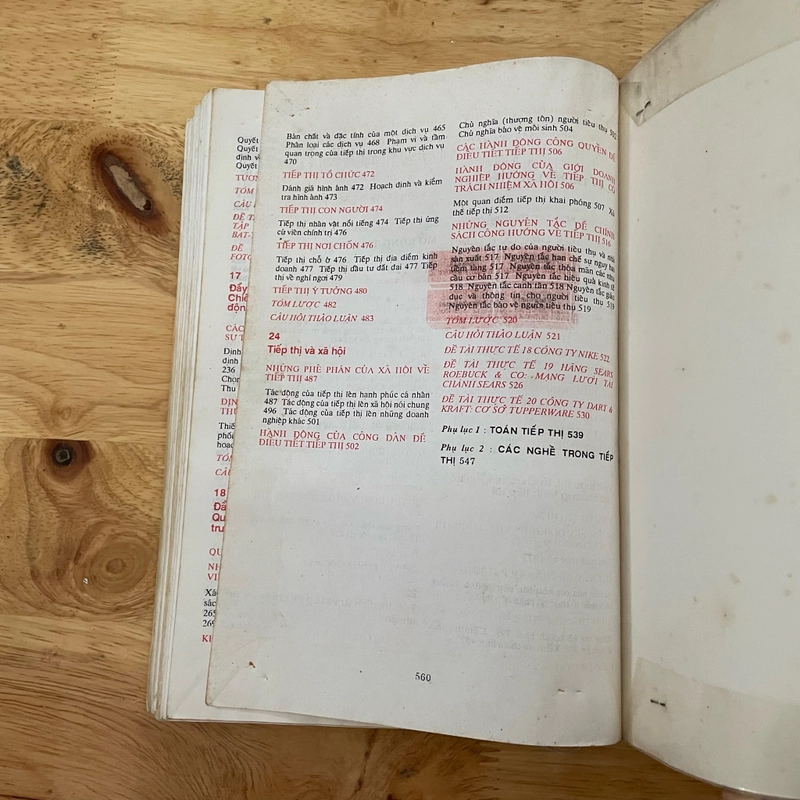 Quyết
Quyết
định về
Quyết
TÓM
CÂU
ĐỀ
TẬP
BAT-
ĐỀ
FOTO
17
Đẩy
Chiế
động
CÁC
SƯ T
Định
định
236
Chọn
Thu
ĐỊN
THƯ
Thiế
phối
hoạc
TÓM
CÂU
18
Đẩ
Qu
trư
QU
NH
VI
Xác
sác
265
269
Bản chất và đặc tính của một dịch vụ 465
Phân loại các dịch vụ 468 Phạm vi và tầm
quan trọng của tiếp thị trong khu vực dịch vụ
470
TIẾP THỊ TỔ CHỨC 472
Đánh giá hình ảnh 472 Hoạch định và kiểm
tra hình ảnh 473
TIẾP THỊ CON NGƯỜI 474
Tiếp thị nhân vật nổi tiếng 474 Tiếp thị ứng
cử viên chính trị 476
TIẾP THỊ NƠI CHỐN 476
Tiếp thị chỗ ở 476 Tiếp thị địa điểm kinh
doanh 477 Tiếp thị đầu tư đất đai 477 Tiếp
thị về nghỉ ngơi 479
TIẾP THỊ Ý TƯỞNG 480
TÓM LƯỢC 482
CÂU HỎI THẢO LUẬN 483
24
Tiếp thị và xã hội
NHỮNG PHÊ PHÁN CỦA XÃ HỘI VỀ
TIẾP THỊ 487
Tác động của tiếp thị lên hạnh phúc cá nhân
487 Tác động của tiếp thị lên xã hội nói chung
496 Tác động của tiếp thị lên những doanh
nghiệp khác 501
HÀNH ĐỘNG CỦA CÔNG DÂN ĐỂ
ĐIỀU TIẾT TIẾP THỊ 502
Chủ nghĩa (thượng tôn) người tiêu thụ 502
Chủ nghĩa bảo vệ môi sinh 504
CÁC HÀNH ĐỘNG CÔNG QUYỀN ĐỂ
ĐIỀU TIẾT TIẾP THỊ 506
HÀNH ĐỘNG CỦA GIỚI DOANH
NGHIỆP HƯỚNG VỀ TIẾP THỊ CÓ
TRÁCH NHIỆM XÃ HỘI 506
Một quan điểm tiếp thị khai phóng 507 Xã
thể tiếp thị 512
NHỮNG NGUYÊN TẮC ĐỂ CHÍNH
SÁCH CÔNG HƯỚNG VỀ TIẾP THỊ 516
Nguyên tắc tự do của người tiêu thụ và nhà
sản xuất 517 Nguyên tắc hạn chế sự nguy hại
tiềm tàng 517 Nguyên tắc thỏa mãn các nhu
cầu cơ bản 517 Nguyên tắc hiệu quả kinh tế
518 Nguyên tắc canh tân 518 Nguyên tắc giáo
dục và thông tin cho người tiêu thụ 519
Nguyên tắc bảo vệ người tiêu thụ 519
TÓM LƯỢC 520
CÂU HỎI THẢO LUẬN 521
ĐỀ TÀI THỰC TẾ 18 CÔNG TY NIKE 522
ĐỀ TÀI THỰC TẾ 19 HÃNG SEARS
ROEBUCK & CO: MẠNG LƯỚI TÀI
CHÁNH SEARS 526
ĐỀ TÀI THỰC TẾ 20 CÔNG TY DART &
KRAFT: CƠ SỞ TUPPERWARE 530
Phụ lục 1 : TOÁN TIẾP THỊ 539
Phụ lục 2 : CÁC NGHỀ TRONG TIẾP
THỊ 547
560